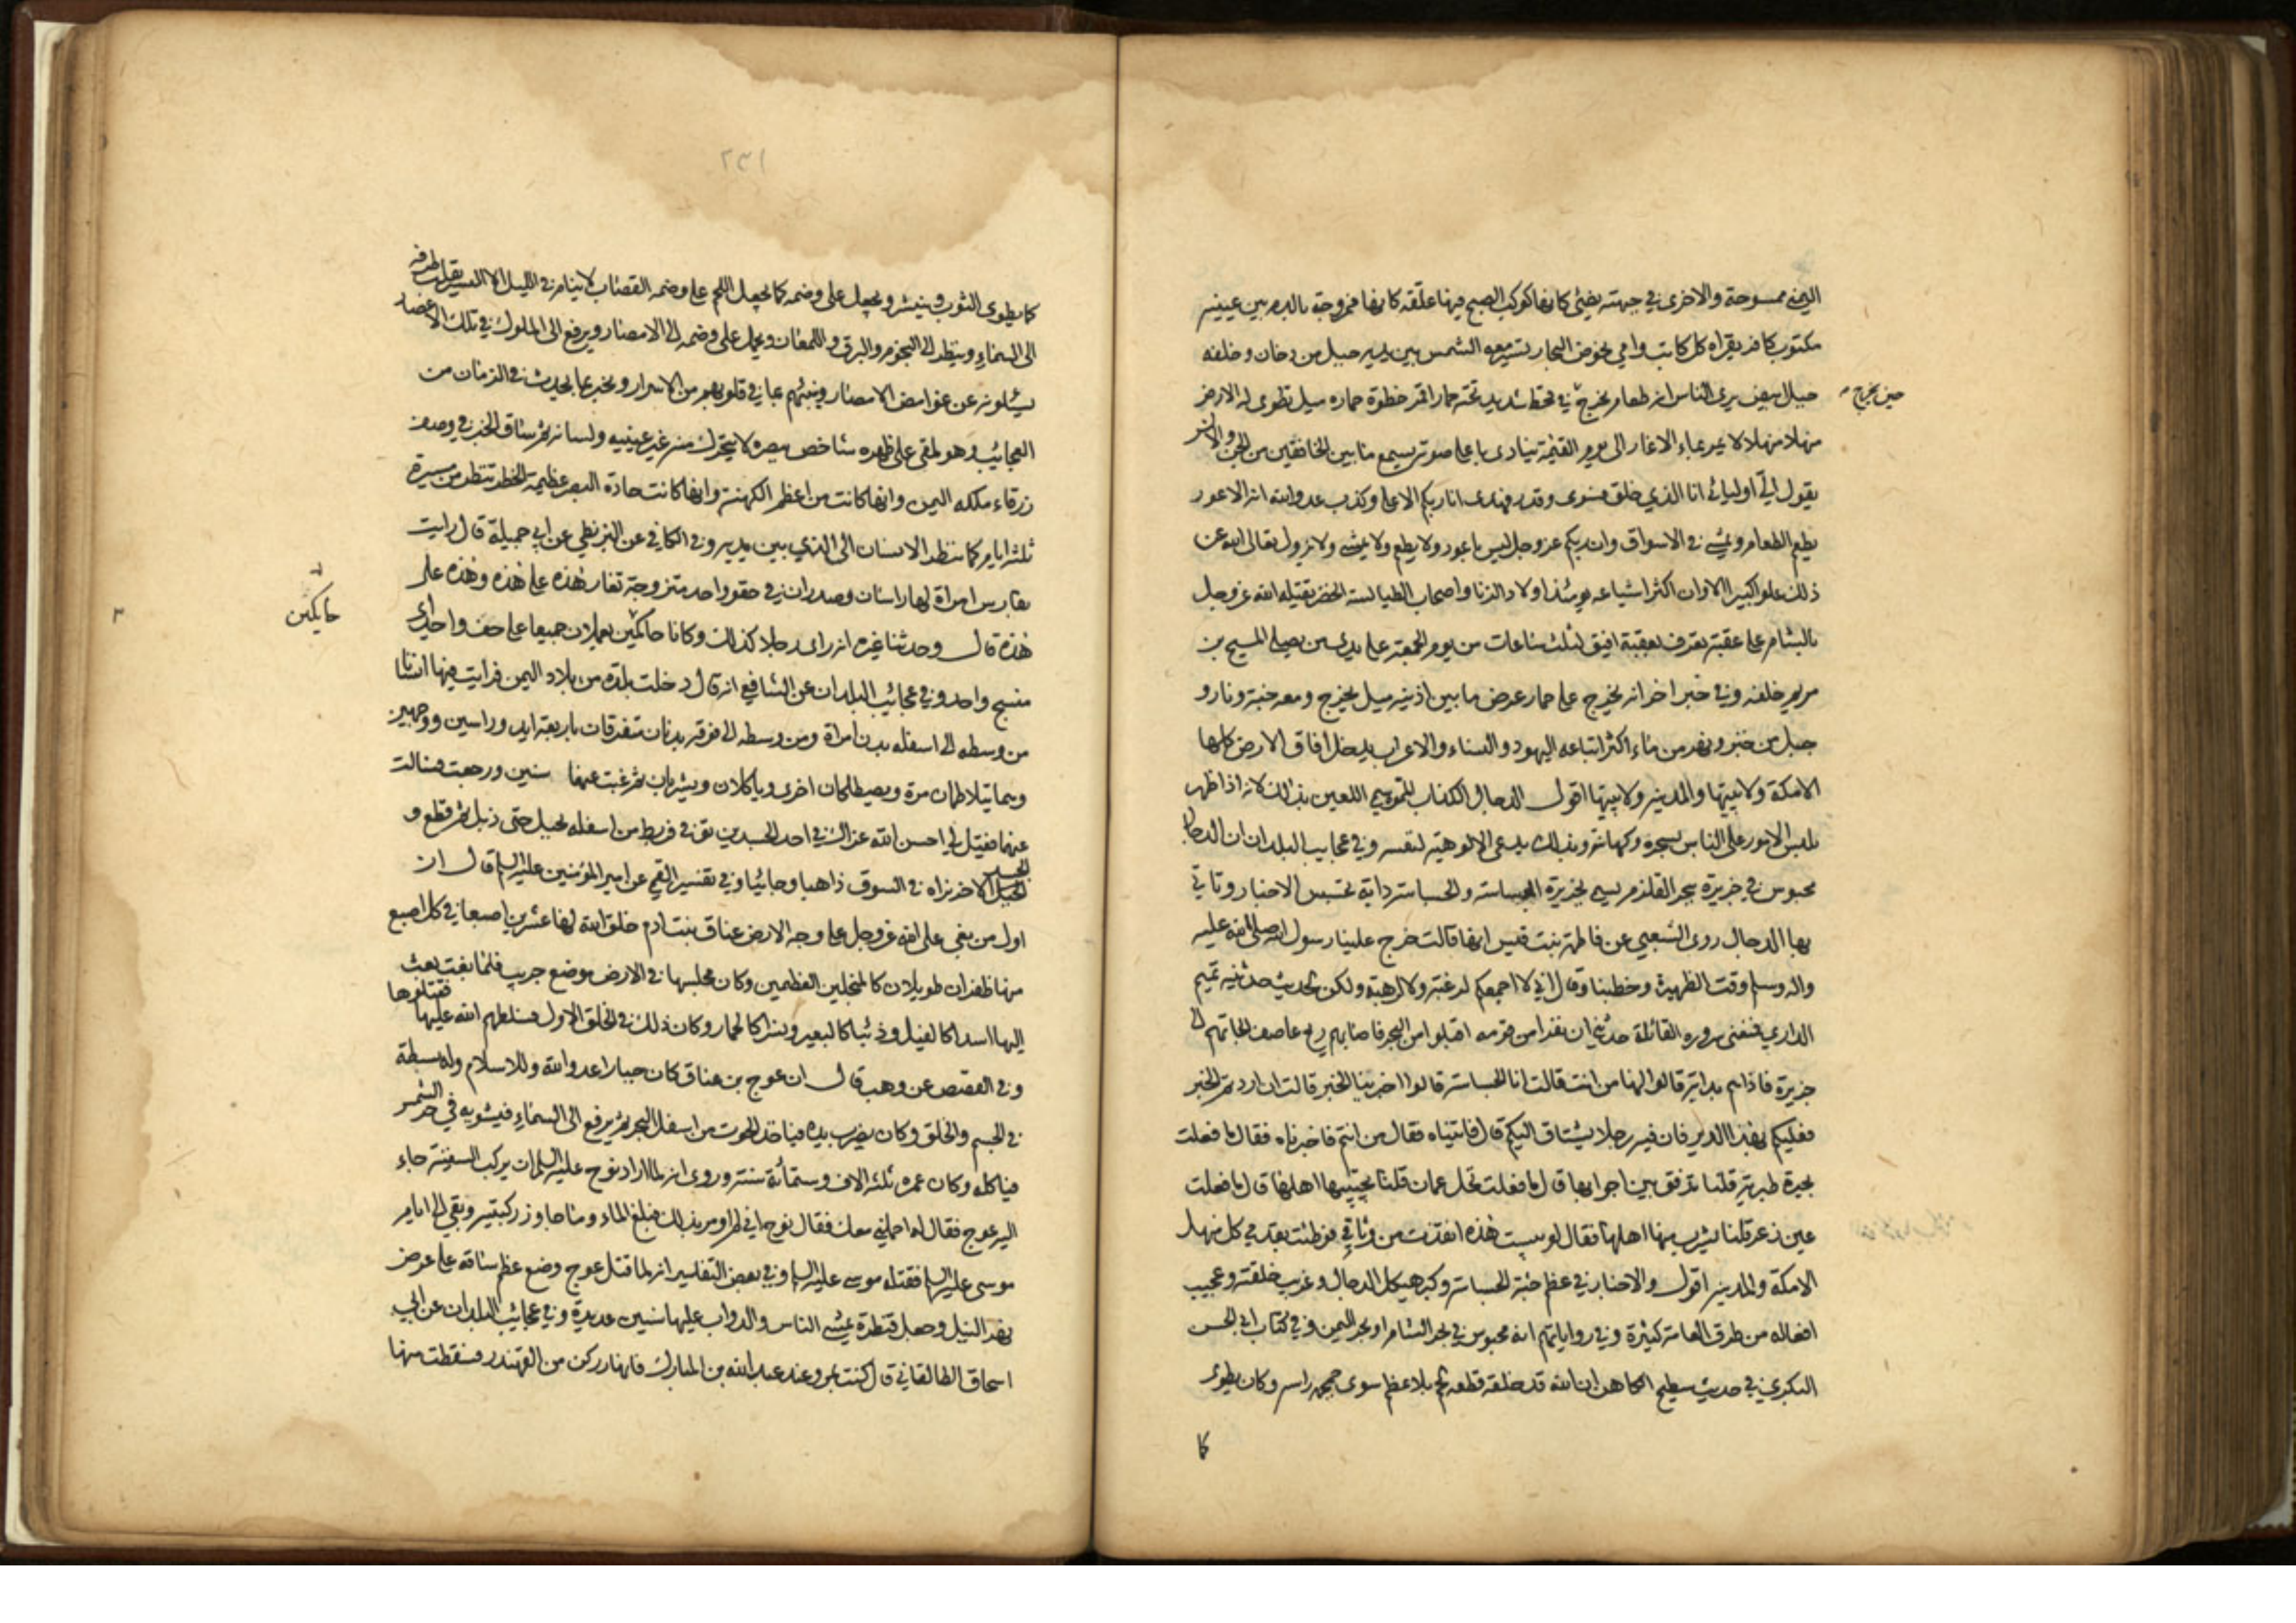 اليمنى ممسوحة والاخرى في جبهته تضئ كانها كوكب الصبح فيها علقة كانها ممزوجة بالدم بين عينيه
مكتوب كافر يقراه كل كاتب وامي يخوض البحار تسير معه الشمس بين يديه جبل من دخان وخلفه
جبل ابيض يرى الناس انه طعام يخرج في قحط شديد تحته حمار اقمر خطوة حماره ميل تطوى له الارض
حين يخرج
منهلا منهلا لا يمر بماء الا غار الى يوم القيمة ينادي باعلى صوته يسمع ما بين الخافقين من الجن والانس
يقول الي اوليائي انا الذي خلق فسوى وقدر فهدى انا ربكم الاعلى وكذب عدو الله انه الاعور
يطعم الطعام ويمشي في الاسواق وان ربكم عز وجل ليس باعور ولا يطعم ولا يمشي ولا يزول تعالى الله عن
ذلك علوا كبيرا الا وان اكثر اشياعه يومئذ اولاد الزنا واصحاب الطيالسة الخضر يقتله الله عز وجل
بالشام على عقبة تعرف بعقبة افيق لثلث ساعات من يوم الجمعة على يدي من يصلي المسيح بن
مريم خلفه وفي خبر اخر انه يخرج على حمار عرض ما بين اذنيه ميل يخرج ومعه جنة ونار و
جبل من خبز ونهر من ماء اكثر اتباعه اليهود والنساء والاعراب يدخل افاق الارض كلها
الا مكة ولابتيها والمدينة ولابتيها اقول الدجال الكذاب للتمويه اللعين بذلك لانه اذا ظهر
يلبس الامور على الناس بسحره وكهانته وبذلك يدعى الالوهية لنفسه وفي عجايب البلدان ان الدجال
محبوس في جزيرة بحر القلزم يسمى بجزيرة الجساسة والجساسة دابة تجسس الاخبار وتاتي
بها الدجال روى الشعبي عن فاطمة بنت قيس انها قالت خرج علينا رسول الله صلى الله عليه
واله وسلم وقت الظهيرة وخطبنا وقال اني لا اجمعكم لرغبة ولا لرهبة ولكن لحديث حدثنيه تميم
الداري فمنعني سروره القائلة حدثني ان نفرا من قومه اقبلوا من البحر فاصابهم ريح عاصف الجاتهم الى
جزيرة فاذا هم بدابة قالوا لها من انت قالت انا الجساسة قالوا اخبرينا الخبر قالت ان اردتم الخبر
فعليكم بهذا الدير فان فيه رجلا يشتاق اليكم قال فاتيناه فقال من انتم فاخبرناه فقال ما فعلت
بحيرة طبرية قلنا تدفق بين اجوابها قال ما فعلت نخل عمان قلنا يجتنيها اهلها قال ما فعلت
عين زعر قلنا يشرب منها اهلها فقال لو يبست هذه انفذت من وثاقي فوطئت بقدمي كل منهل
الا مكة والمدينة اقول والاخبار في عظم جثة الجساسة وكبر هيكل الدجال وغريب خلقته وعجيب
افعاله من طرق العامة كثيرة وفي رواياتهم انه محبوس في بحر الشام او بحر اليمن وفي كتاب ابي الحسن
البكري في حديث سطيح الكاهن ان الله قد خلقه قطعة لحم بلا عظم سوى جمجمة راسه وكان يطوى
كا
٢٣١
كما يطوى الثوب وينشر ويجعل على وضمه كما يجعل اللحم على وضمه القصاب لا ينام في الليل الا اليسير يقلب طرفه
الى السماء وينظر الى النجوم والبرق واللمعان ويحمل على وضمه الى الامصار ويرفع الى الملوك في تلك الاعصار
يسئلونه عن غوامض الامصار وينبئهم عما في قلوبهم من الاسرار ويخبر بما يحدث في الزمان من
العجائب وهو ملقى على ظهره شاخص ببصره لا يتحرك منه غير عينيه ولسانه ثم ساق الخبر في وصف
زرقاء ملكه اليمن وانها كانت من اعظم الكهنة وانها كانت حادة البصر عظيمة الخطر تنظر من مسيرة
ثلثه ايام كما ينظر الانسان الى الذي بين يديه وفي الكافي عن البزنطي عن ابي جميلة قال رايت
بفارس امراة لها راسان وصدران في حقو واحد متزوجة تغار هذه على هذه وهذه على
هذه قال وحدثنا غيره انه راى رجلا كذلك وكانا حاكمين يعملان جميعا على حف واحد اي
حايكين
منسج واحد وفي عجائب البلدان عن الشافعي انه قال دخلت بلدة من بلاد اليمن فرايت فيها انسانا
من وسطه الى اسفله بدن امراة ومن وسطه الى فوقه بدنان متفرقان باربعة ايد وراسين ووجهين
وهما يتلاطمان مرة ويصطلحان اخرى وياكلان ويشربان ثم غبت عنهما سنين ورجعت فسالت
عنهما فقيل لي احسن الله عزاك في احد الجسدين توفي فربط من اسفله بحبل حتى ذبل ثم قطع و
الجسد الاخر نراه في السوق ذاهبا وجائيا وفي تفسير القمي عن امير المؤمنين عليه السلم قال ان
اول من بغى على الله عز وجل على وجه الارض عناق بنت ادم خلق الله لها عشرين اصبعا في كل اصبع
منها ظفران طويلان كالمنجلين العظيمين وكان مجلسها في الارض موضع جريب فلما بغت بعث
اليها اسدا كالفيل وذئبا كالبعير ونسرا كالحمار وكان ذلك في الخلق الاول فسلطهم الله عليها فقتلوها
وفي القصص عن وهب قال ان عوج بن عناق كان جبارا عدوا لله وللاسلام وله بسطة
في الجسم والخلق وكان يضرب بيده فياخذ الحوت من اسفل البحر ثم يرفع الى السماء فيشويه في حر الشمس
فياكله وكان عمره ثلثه الاف وستمائة سنة وروي انه لما اراد نوح عليه السلم ان يركب السفينة جاء
اليه عوج فقال له احملني معك فقال نوح اني لم اومر بذلك فبلغ الماء وما جاوز ركبتيه وبقي الى ايام
موسى عليه السلم فقتله موسى عليه السلم وفي بعض التفاسير انه لما قتل عوج وضع عظم ساقه على عرض
نهر النيل وجعل قنطرة يمشي الناس والدواب عليها سنين عديدة وفي عجائب البلدان عن ابي
اسحاق الطالقاني قال كنت بمرو عند عبد الله بن المبارك فانهار ركن من القهندر فسقطت منها